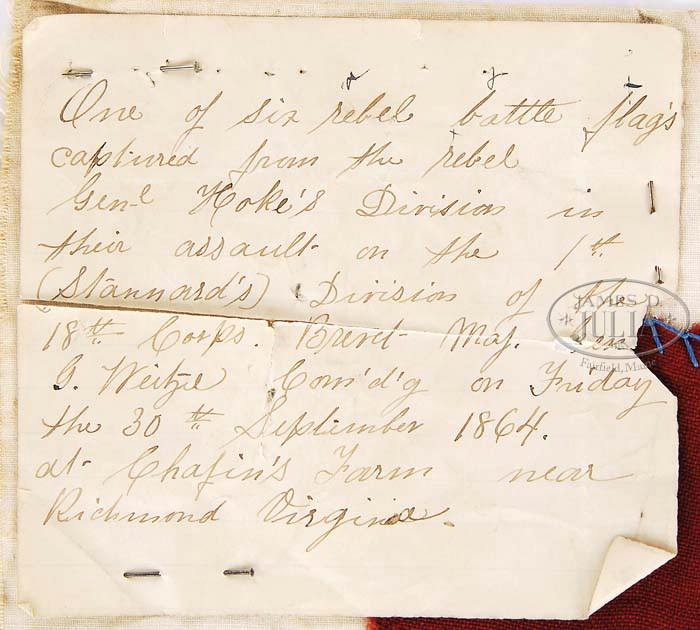 One of six rebel battle flag's
captured from the rebel
Gen-l Hoke's Division in
their assault on the 1st
(Stannard's) Division of the
18th Corps. Brevet Maj. Gen
G. Weitzel Com'd'g on Friday
the 30th September 1864.
at Chafin's Farm near
Richmond Virginia.
JAMES D.
JULIA
Fairfield, Maine